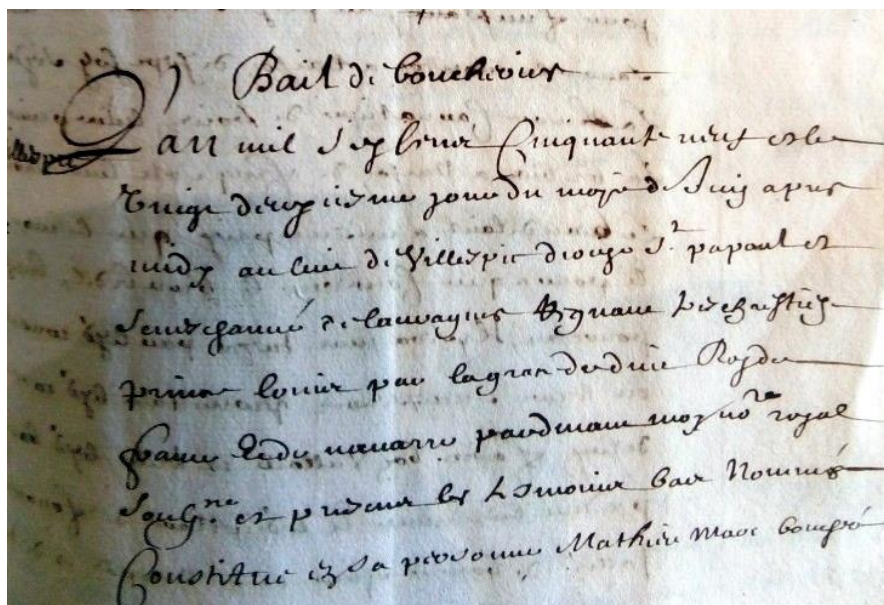 Bail de boucherie
Lan mil sept cens Cinquante neuf et le
vingt deuxiesme jour du moys de Juin apres
midy au lieu de Villespic dioceze St papoul et
Seneschaucé de lauragues Regnant treschrestien
prince louis par la grace de dieu Roy de
france et de navarre pardevant moy nore royal
soubzne et presens les tesmoins bas Nommés
Constitué en sa personne Mathieu Marc